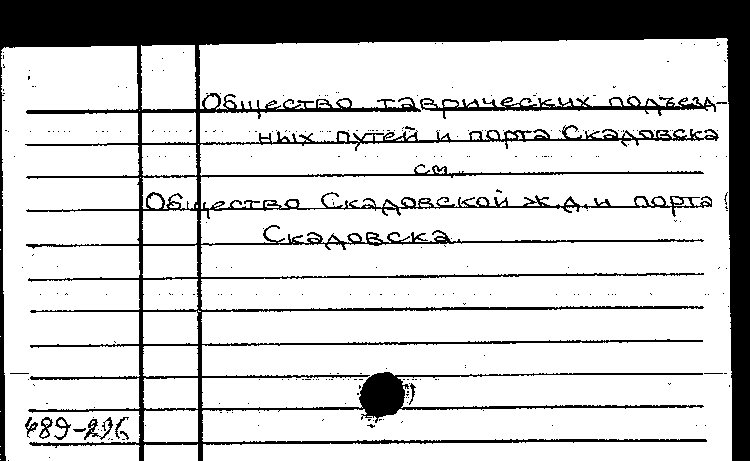 Общество таврических подъезд-
ных путей и порта Скадовска
см.
Общество Скадовской ж.д. и порта
Скадовска.
489-296